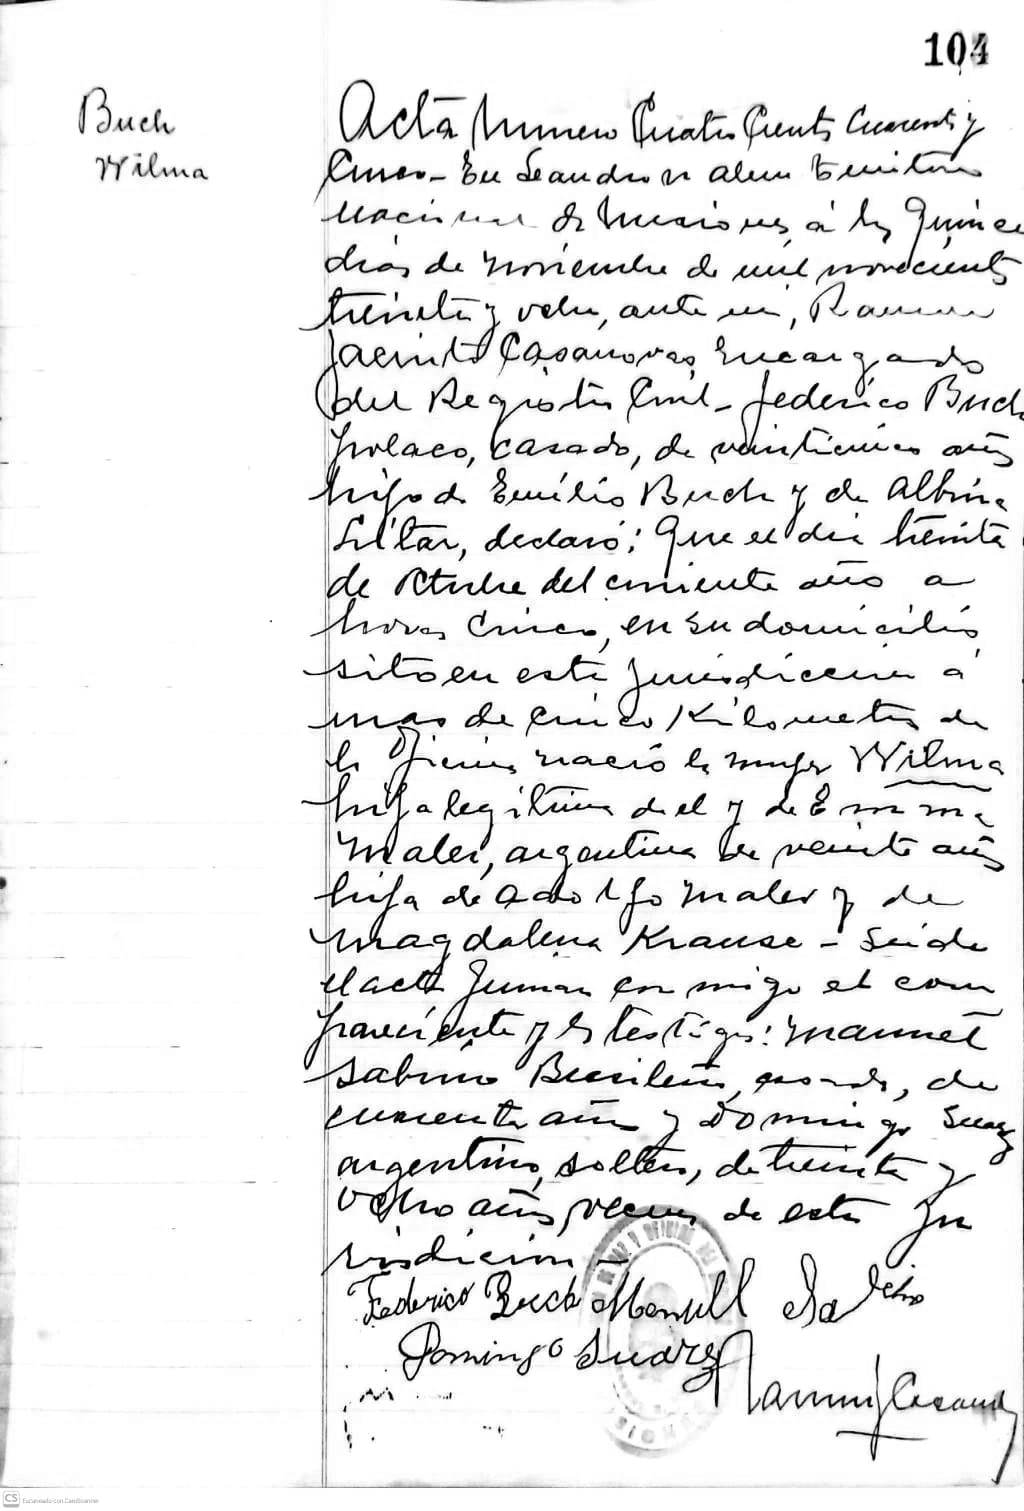 104
Buch
Wilma
Acta Numero Cuatro Cientos Cuarenta y
Cinco - En Leandro N Alem Territorio
Nacional de Misiones, á los Quince
dias de Noviembre de mil novecientos
treinta y ocho, ante mi, Ramon
Jacinto Casanovas, Encargado
del Registro Civil - Federico Buch
polaco, casado, de veinticinco años
hijo de Emilio Buch y de Albina
declaró: Que el dia treinta
de Octubre del corriente año a
horas Cinco, en su domicilio
sito en esta jurisdiccion á
mas de cinco Kilometros de
la Oficina nació la mujer Wilma
hija legitima de el y de Emma
Maler, argentina de veinte años
hija de Adolfo Maler y de
Magdalena Krause - Leida
el acta firman conmigo el com
pareciente y los testigos: Manuel
Sabino Brasileño, casado, de
cuarenta años y Domingo Suarez
argentino, soltero, de treinta y
ocho años, vecinos de esta Ju
risdicion
Federico Buch Manuel
Domingo Suarez
Ramon J Casanovas
CS Escaneado con CamScanner